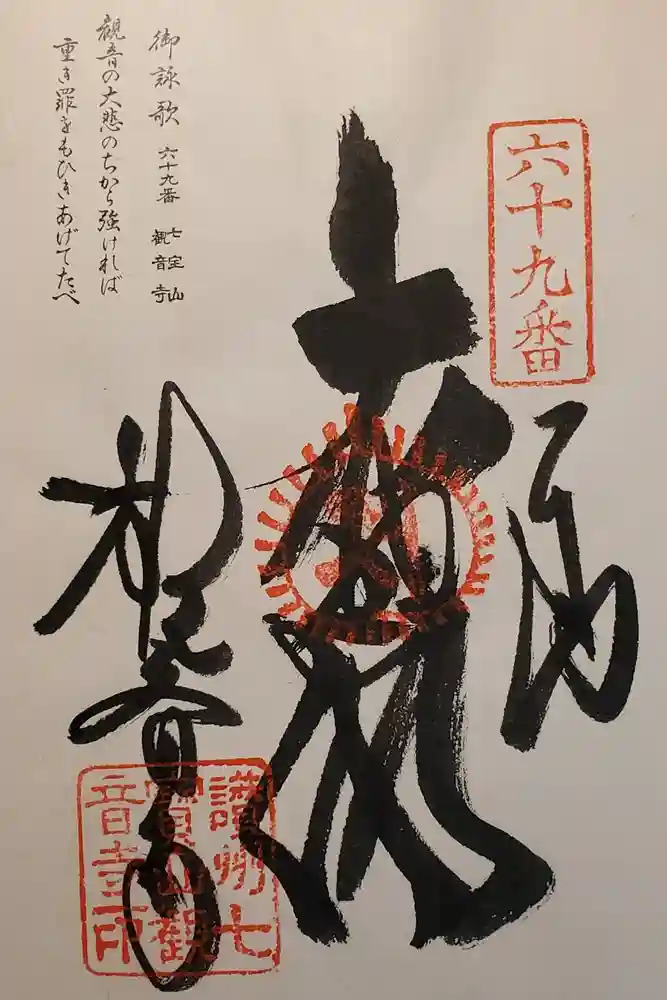 六十九番
観音寺
讃州七
寳山觀
音寺印
御詠歌 六十九番 七宝山 観音寺
観音の大悲のちから強ければ
重き罪をもひきあげてたべ